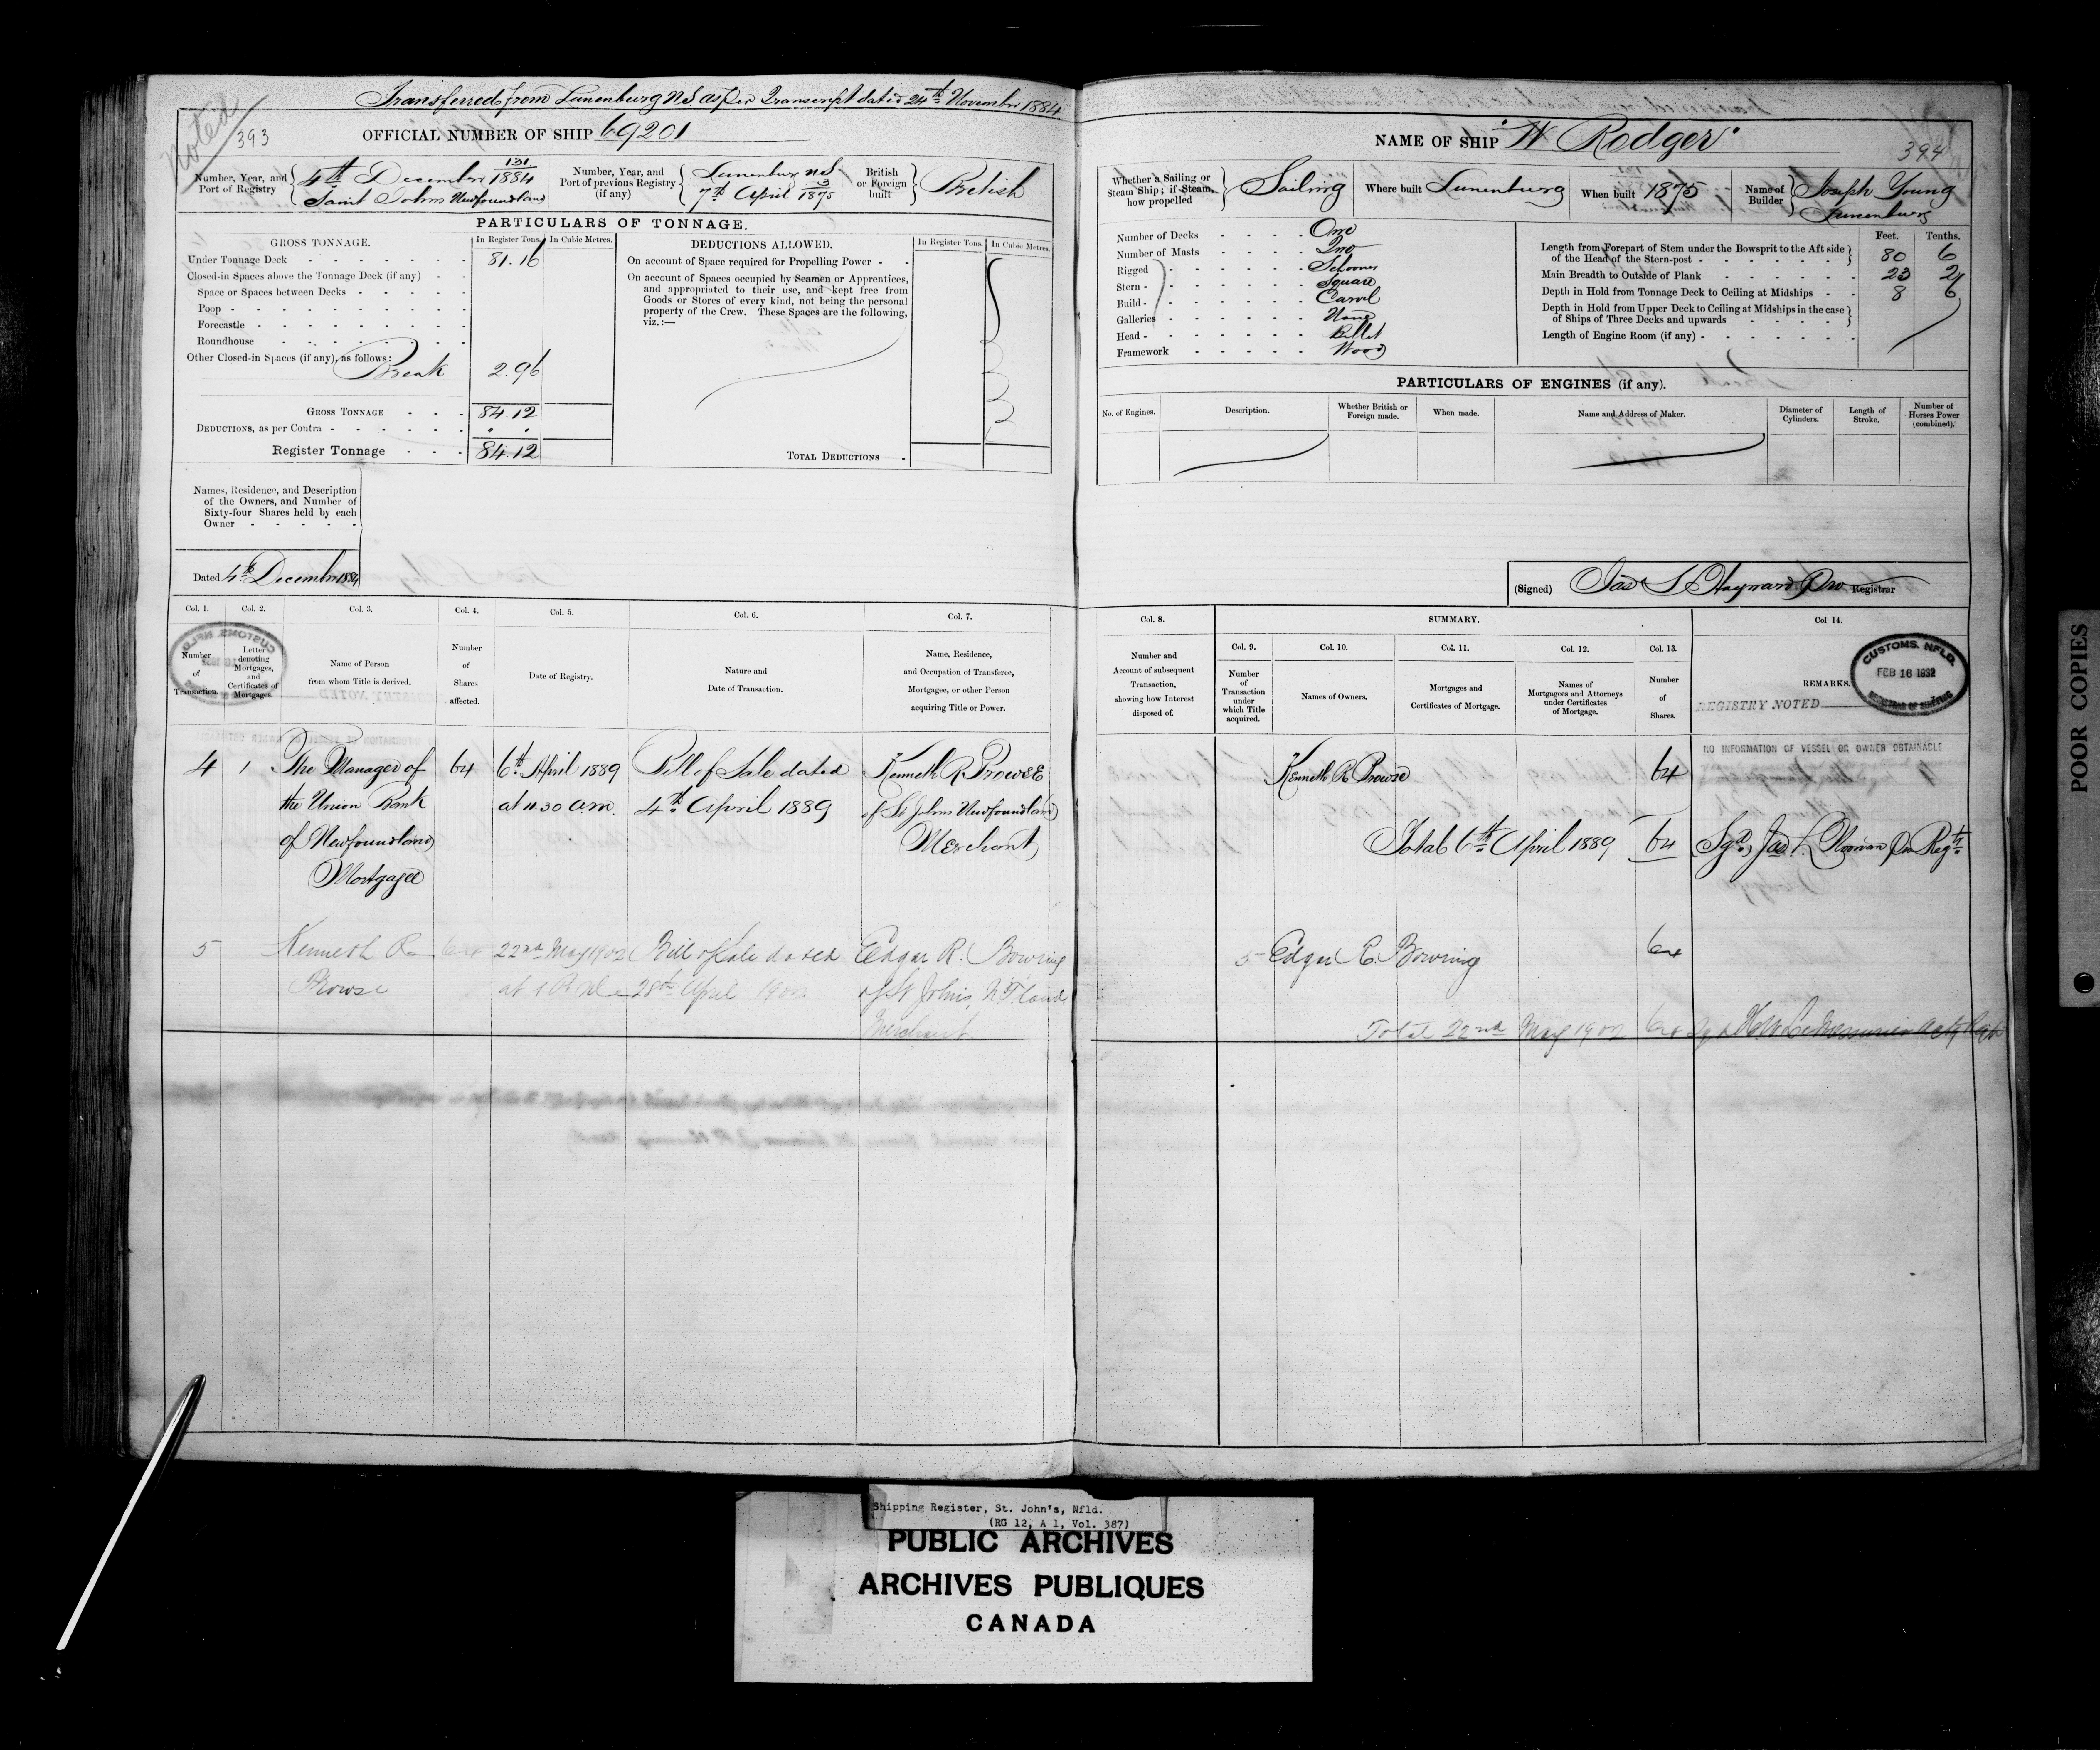 Transferred from Lunenburg N.S. as per Transcript dated 24th November 1884
Noted
393
OFFICIAL NUMBER OF SHIP 69201
Number, Year, and Port of Registry { 4th December 131/1884
Saint Johns Newfoundland
Number, Year, and Port of previous Registry (if any) { Lunenburg N.S.
7th April 13/1875
British or Foreign built } British
PARTICULARS OF TONNAGE.
GROSS TONNAGE. In Register Tons. In Cubic Metres.
Under Tonnage Deck - 81.16
Closed-in Spaces above the Tonnage Deck (if any) - -
Space or Spaces between Decks
Poop
Forecastle
Roundhouse
Other Closed-in Spaces (if any), as follows:
Break 2.96
GROSS TONNAGE - - - 84.12
DEDUCTIONS, as per Contra - " "
Register Tonnage - - - 84.12
DEDUCTIONS ALLOWED. In Register Tons. In Cubic Metres.
On account of Space required for Propelling Power - -
On account of Spaces occupied by Seamen or Apprentices,
and appropriated to their use, and kept free from
Goods or Stores of every kind, not being the personal
property of the Crew. These Spaces are the following,
viz.:—
TOTAL DEDUCTIONS -
Names, Residence, and Description
of the Owners, and Number of
Sixty-four Shares held by each
Owner - - - - -
Dated 4th December 1884
Col. 1. Col. 2. Col. 3. Col. 4. Col. 5. Col. 6. Col. 7.
Number of Transaction.
Letter denoting Mortgages, and Certificates of Mortgages.
Name of Person from whom Title is derived.
Number of Shares affected.
Date of Registry.
Nature and Date of Transaction.
Name, Residence, and Occupation of Transferee, Mortgagee, or other Person acquiring Title or Power.
4 1 The Manager of 64 6th April 1889 Bill of Sale dated Kenneth R. Prowse
the Union Bank at 11.30 a.m. 4th April 1889 of St Johns Newfoundland
of Newfoundland Merchant
Mortgagee
5 Kenneth R 64 22nd May 1902 Bill of Sale dated Edgar R. Bowring
Prowse at 1 P.M. 28th April 1902 of St Johns, N.F.land
Merchant
NAME OF SHIP "W Rodger"
394
Whether a Sailing or Steam Ship; if Steam, how propelled } Sailing
Where built Lunenburg
When built 1875
Name of Builder } Joseph Young
Lunenburg
Number of Decks - One
Number of Masts - Two
Rigged - Schooner
Stern - Square
Build - Carvel
Galleries - None
Head - Billet
Framework - Wood
Feet. Tenths.
Length from Forepart of Stem under the Bowsprit to the Aft side
of the Head of the Stern-post - 80 6
Main Breadth to Outside of Plank - 23 2
Depth in Hold from Tonnage Deck to Ceiling at Midships - 8 6
Depth in Hold from Upper Deck to Ceiling at Midships in the case
of Ships of Three Decks and upwards
Length of Engine Room (if any)
PARTICULARS OF ENGINES (if any).
No. of Engines. Description. Whether British or Foreign made. When made. Name and Address of Maker. Diameter of Cylinders. Length of Stroke. Number of Horses Power (combined).
(Signed) Jas S Hayward Pro Registrar
Col. 8. SUMMARY. Col 14.
Col. 9. Col. 10. Col. 11. Col. 12. Col. 13.
Number and Account of subsequent Transaction, showing how Interest disposed of.
Number of Transaction under which Title acquired.
Names of Owners.
Mortgages and Certificates of Mortgage.
Names of Mortgagees and Attorneys under Certificates of Mortgage.
Number of Shares.
REMARKS.
CUSTOMS. NFLD.
FEB 16 1932
REGISTRAR OF SHIPPING
REGISTRY NOTED
NO INFORMATION OF VESSEL OR OWNER OBTAINABLE
Kenneth R. Prowse 64
Total 6th April 1889 64 Sgd Jas Norman Pro Regr
5 Edgar R. Bowring 64
Total 22nd May 1902 64 Sgd H.W. LeMessurier Actg Regr
POOR COPIES
Shipping Register, St. John's, Nfld.
(RG 12, A 1, Vol. 387)
PUBLIC ARCHIVES
ARCHIVES PUBLIQUES
CANADA